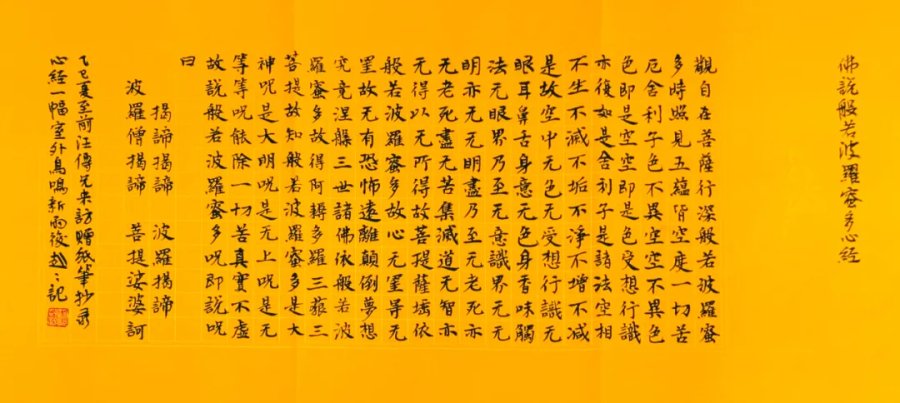 佛説般若波羅蜜多心經
觀自在菩薩行深般若波羅蜜
多時照見五蘊皆空度一切苦
厄舍利子色不異空空不異色
色即是空空即是色受想行識
亦復如是舍利子是諸法空相
不生不滅不垢不淨不增不减
是故空中无色无受想行識无
眼耳鼻舌身意无色身香味觸
法无眼界乃至无意識界无无
明亦无无明盡乃至无老死亦
无老死盡无苦集滅道无智亦
无得以无所得故菩提薩埵依
般若波羅蜜多故心无罣㝵无
罣故无有恐怖遠離顛倒夢想
究竟涅槃三世諸佛依般若波
羅蜜多故得阿耨多羅三藐三
菩提故知般若波羅蜜多是大
神呪是大明呪是无上呪是无
等等呪能除一切苦真實不虛
故説般若波羅蜜多呪即説呪
曰
揭諦揭諦 波羅揭諦
波羅僧揭諦 菩提娑婆訶
乙巳夏至前汪傳兄来訪贈紙筆抄录
心经一幅室外鳥鳴新雨後 記